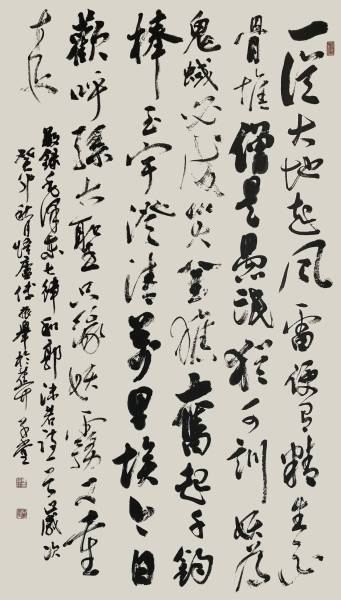 一從大地起風雷便有精生白
骨堆僧是愚氓猶可訓妖為
鬼蜮必成災金猴奮起千鈞
棒玉宇澄清萬里埃今日
歡呼孫大聖只緣妖霧又重
來
錄毛澤東七律和郭沫若詩一首歲次
癸卯秋月